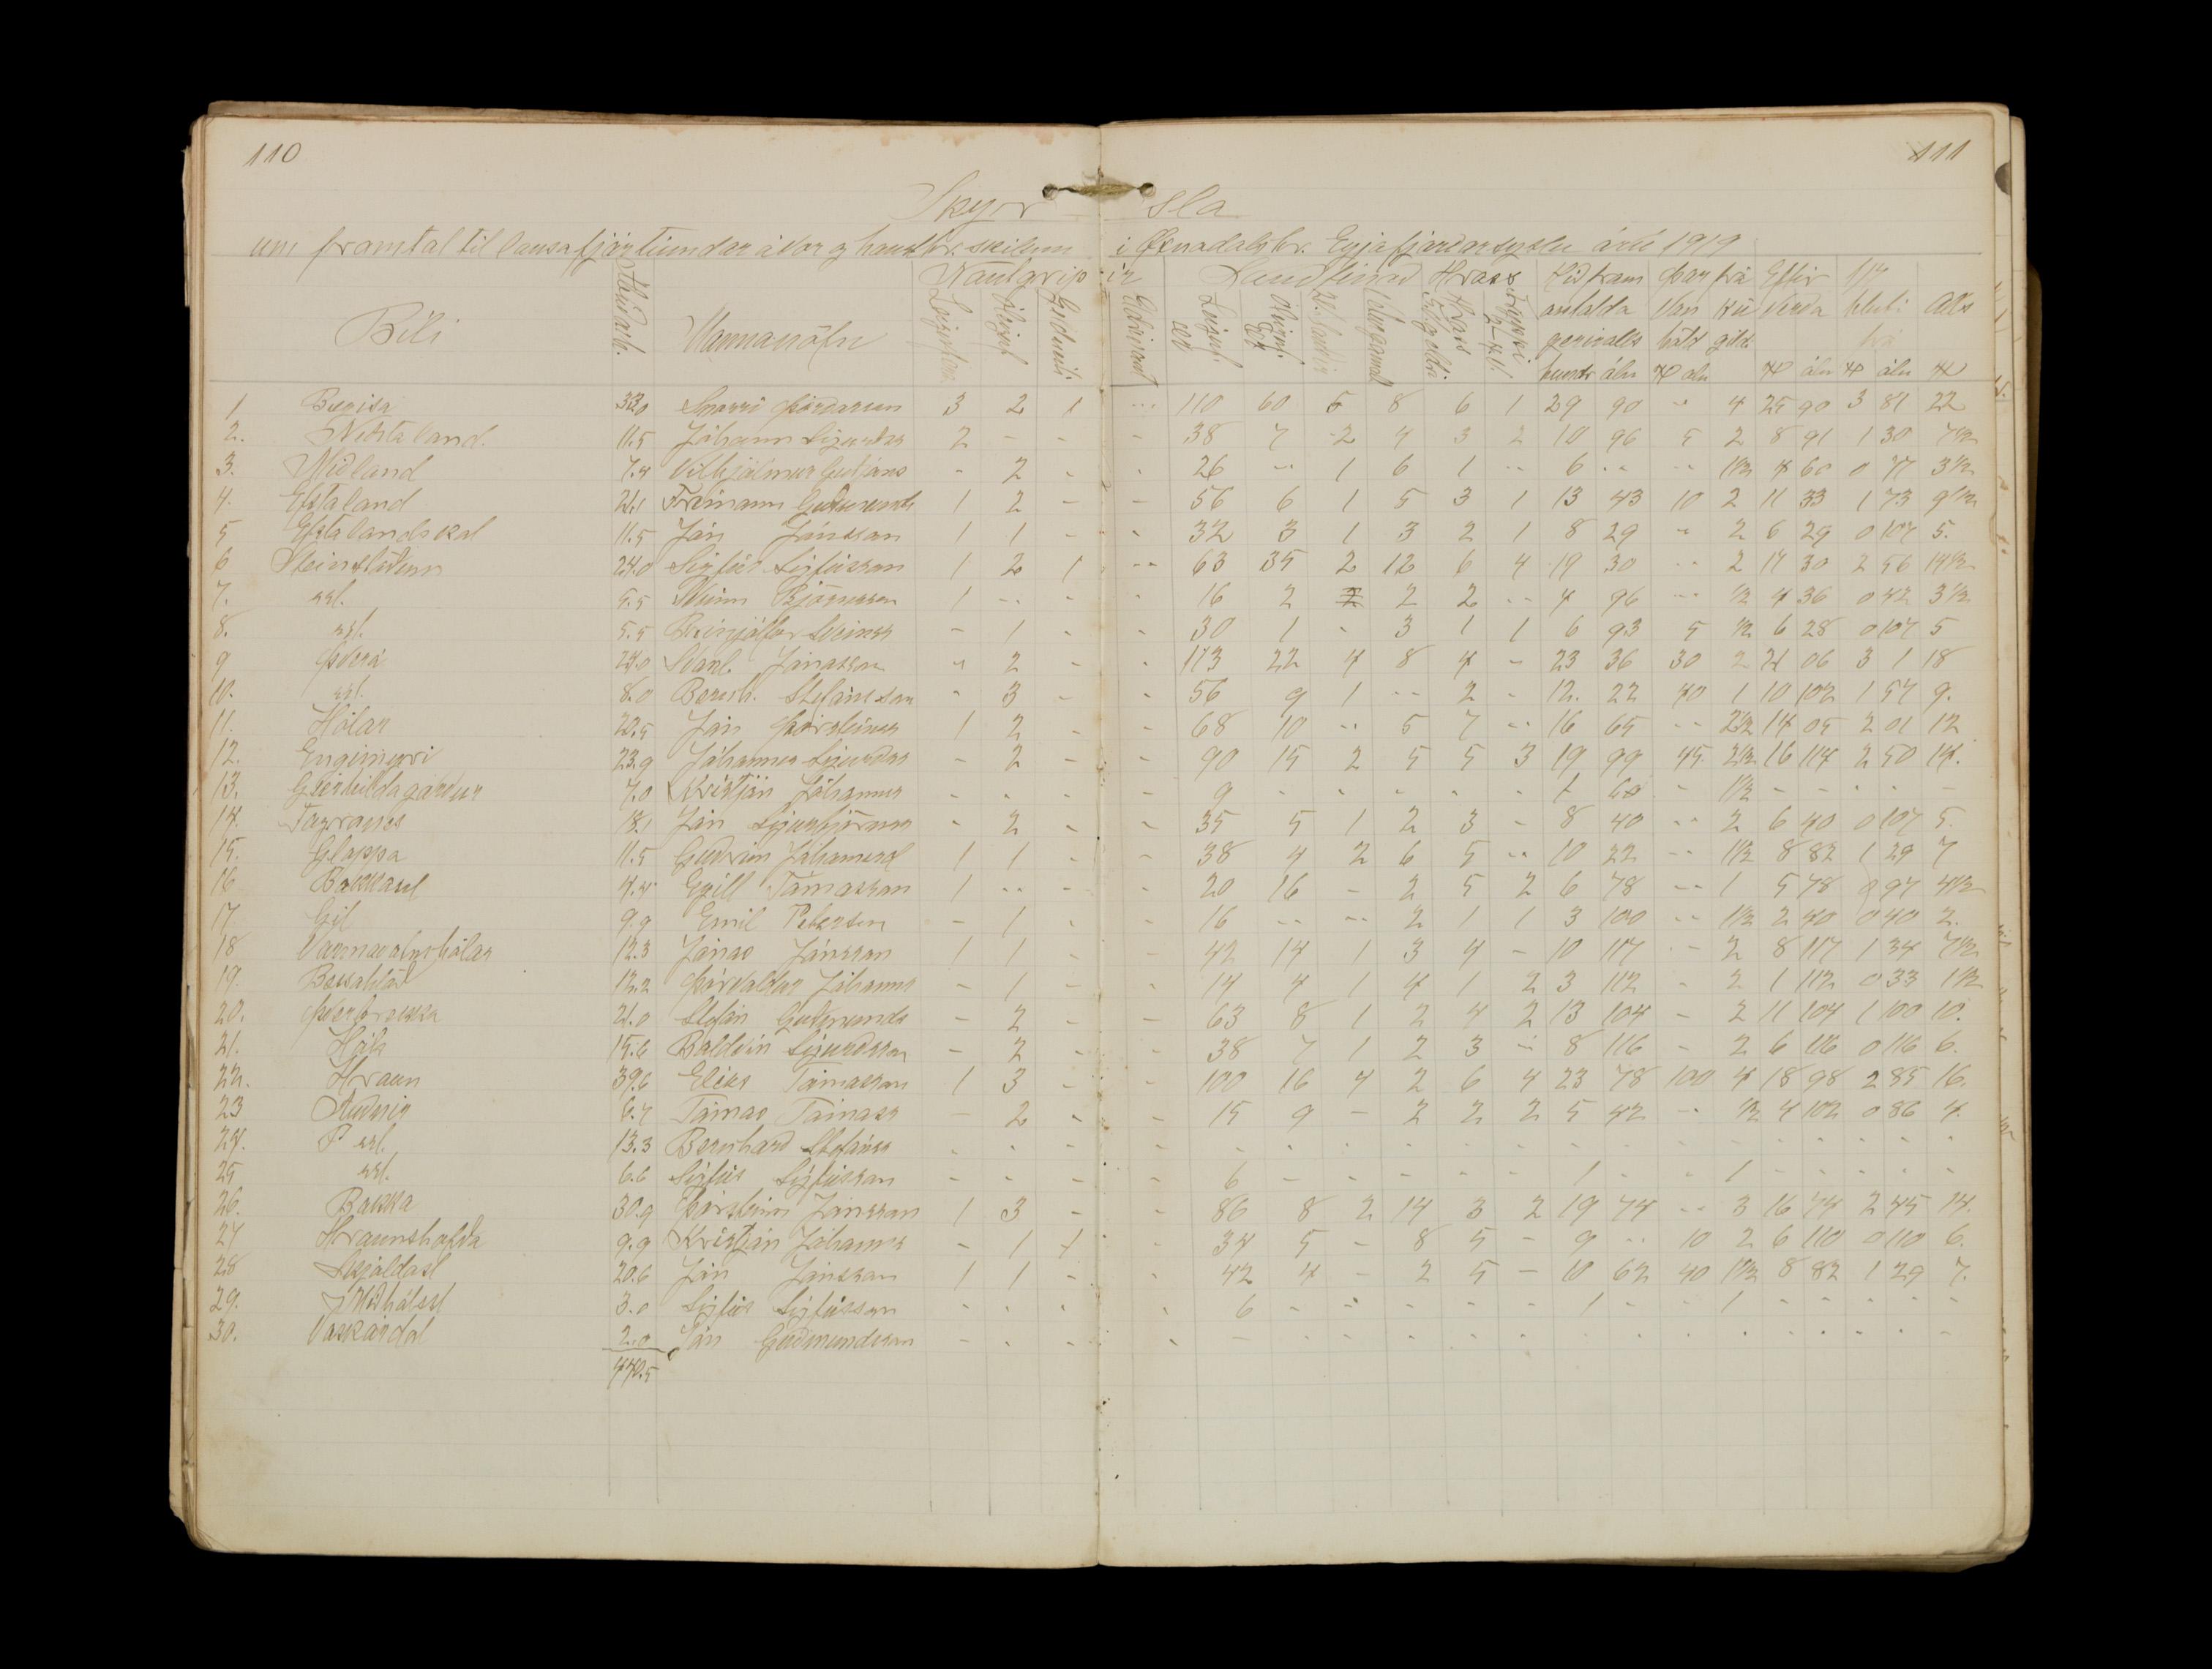 110 111
Skýr sla
um framtal til lausafjártíundar á vor og haust hr. skilum í Öxnadalshr. Eyjafjarðarsýslu árið 1919
Nautgrip ir Sauðfénað Hross Hið fram Þar frá Eftir 1/7 Alls
antalda Van Kú Verða hluti
Bíli Mannanöfn geirvalls höld gild frá
hundr áln H áln H áln H áln H
1. Bægisá 33.0 Snorri Þórðarson 3 2 1 -- 110 60 6 8 6 1 29 90 -- 4 25 90 3 81 22
2. Neðstaland. 11.5 Jóhann Sigurðss 2 - - - 38 7 2 4 3 2 10 96 5 2 8 91 1 30 7½
3. Miðland 7.4 Vilhjálmur Guðjóns - 2 - - 26 -- 1 6 1 -- 6 -- -- 1½ 4 60 0 77 3½
4. Efstaland 21.1 Frímann Guðmunds 1 2 - - 56 6 1 5 3 1 13 43 10 2 11 33 1 73 9½
5 Efstalandskot 11.5 Ján Jánsson 1 1 - - 32 3 1 3 2 1 8 29 - 2 6 29 0 107 5.
6 Steinstöðum 24.0 Sigfús Sigfússon 1 2 1 -- 63 35 2 12 6 4 19 30 -- 2 17 30 2 56 14½
7. ssl. 5.5 Steinn Björnsson 1 -- - - 16 2 2 2 -- 4 96 -- ½ 4 36 0 72 3½
8. ssl. 5.5 Brynjólfur Sveinss - 1 - - 30 1 - 3 1 1 6 93 5 ½ 6 28 0 107 5
9 Þverá 24.0 Svanl. Jónasson - 2 - - 113 22 4 8 4 - 23 36 30 2 21 06 3 1 18
10. ssl. 8.0 Bernh. Stefánsson - 3 - - 56 9 1 -- 2 - 12. 22 40 1 10 102 1 57 9.
11. Hólar 22.5 Ján Þorsteinss 1 2 - - 68 10 -- 5 7 -- 16 65 -- 2½ 14 05 2 01 12
12. Engimýri 23.9 Jóhannes Sigurðss - 2 - - 90 15 2 5 5 3 19 99 45 2½ 16 114 2 50 14.
13. Geirhildagarður 7.0 Kristján Jóhannss - - - - 9 - - - - - 1 60 - 1½ - - - - -
14. Fagranes 18.1 Ján Sigurbjörnss - 2 - - 35 5 1 2 3 - 8 40 -- 2 6 40 0 107 5.
15. Gloppa 11.5 Guðrún Jóhannesd 1 1 - - 38 4 2 6 5 -- 10 22 -- 1½ 8 82 1 29 7
16 Bakkasel 4.4 Egill Tómasson 1 -- - - 20 16 - 2 5 2 6 78 -- 1 5 78 0 97 4½
17. Gil 9.9 Emil Petersen - 1 - - 16 -- -- 2 1 1 3 100 -- 1½ 2 40 0 40 2.
18 Varmavatnshólar 12.3 Jónas Jónsson 1 1 - - 42 14 1 3 4 - 10 117 -- 2 8 117 1 34 7½
19. Bessahlöð 12.2 Þorvaldur Jóhanns - 1 - - 14 4 1 4 1 2 3 112 - 2 1 112 0 33 1½
20. Þverbrekka 21.0 Stefán Guðmunds - 2 - - 63 8 1 2 4 2 13 104 - 2 11 104 1 100 10.
21. Háls 15.6 Baldvin Sigurdsson - 2 - - 38 7 1 2 3 -- 8 116 - 2 6 116 0 116 6.
22. Hraun 39.6 Elías Tómasson 1 3 - - 100 16 4 2 6 4 23 78 100 4 18 98 2 85 16.
23 Auðnir 6.7 Tómas Tómass - 2 - - 15 9 - 2 2 2 5 42 -- ½ 4 102 0 86 4.
24. ssl. 13.3 Bernhard Stefánss - - - - - - - - - - - - - - - - - - -
25 ssl. 6.6 Sigfús Sigfússon - - - - 6 - - - - - 1 - - 1 - - - - -
26. Bakka 30.9 Þorsteinn Jónsson 1 3 - - 86 8 2 14 3 2 19 74 -- 3 16 74 2 45 14.
27 Hraunshöfða 9.9 Kristján Jóhanns - 1 1 - 34 5 - 8 5 - 9 -- 10 2 6 110 0 110 6.
28 Skjaldast 20.6 Ján Jónsson 1 1 - - 42 4 - 2 5 - 10 62 40 1½ 8 82 1 29 7.
29. Miðhálsst 3.0 Sigfús Sigfússon - - - - 6 - - - - - 1 - - 1 - - - - -
30. Vaskárdal 2.0 Ján Guðmundsson - - - - - - - - - - - - - - - - - - -
440.5